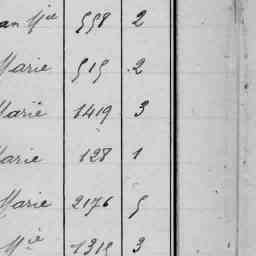 an Mie 558 2
Marie 515 2
Marie 1419 3
Marie 128 1
Marie 2176 5
Mie 1315 3